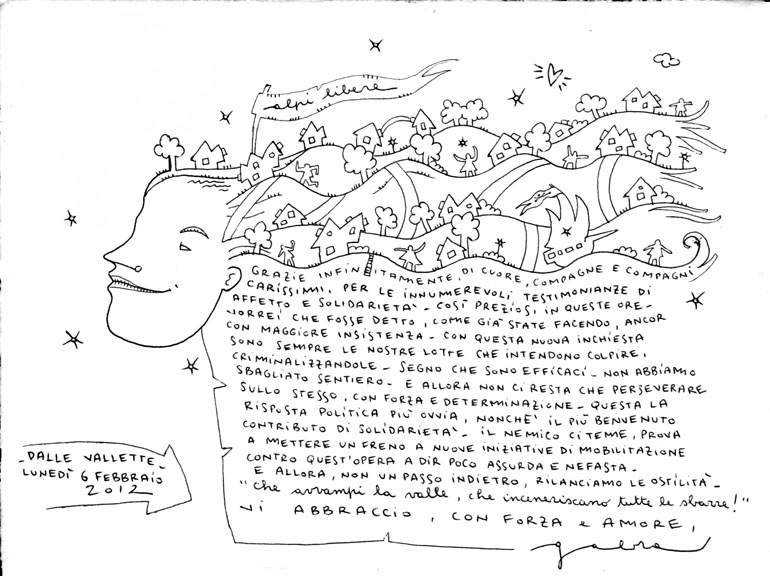 alpi libere
GRAZIE INFINITAMENTE, DI CUORE, COMPAGNE E COMPAGNI
CARISSIMI, PER LE INNUMEREVOLI TESTIMONIANZE DI
AFFETTO E SOLIDARIETÀ - COSÌ PREZIOSI, IN QUESTE ORE -
VORREI CHE FOSSE DETTO, COME GIÀ STATE FACENDO, ANCOR
CON MAGGIORE INSISTENZA - CON QUESTA NUOVA INCHIESTA
SONO SEMPRE LE NOSTRE LOTTE CHE INTENDONO COLPIRE,
CRIMINALIZZANDOLE - SEGNO CHE SONO EFFICACI - NON ABBIAMO
SBAGLIATO SENTIERO - E ALLORA NON CI RESTA CHE PERSEVERARE
SULLO STESSO, CON FORZA E DETERMINAZIONE - QUESTA LA
RISPOSTA POLITICA PIÙ OVVIA, NONCHÈ IL PIÙ BENVENUTO
CONTRIBUTO DI SOLIDARIETÀ - IL NEMICO CI TEME, PROVA
A METTERE UN FRENO A NUOVE INIZIATIVE DI MOBILITAZIONE
CONTRO QUEST'OPERA A DIR POCO ASSURDA E NEFASTA -
E ALLORA, NON UN PASSO INDIETRO, RILANCIAMO LE OSTILITÀ -
"che avvampi la valle, che inceneriscano tutte le sbarre!"
VI ABBRACCIO, CON FORZA e AMORE,
- DALLE VALLETTE -
LUNEDÌ 6 FEBBRAIO
2012